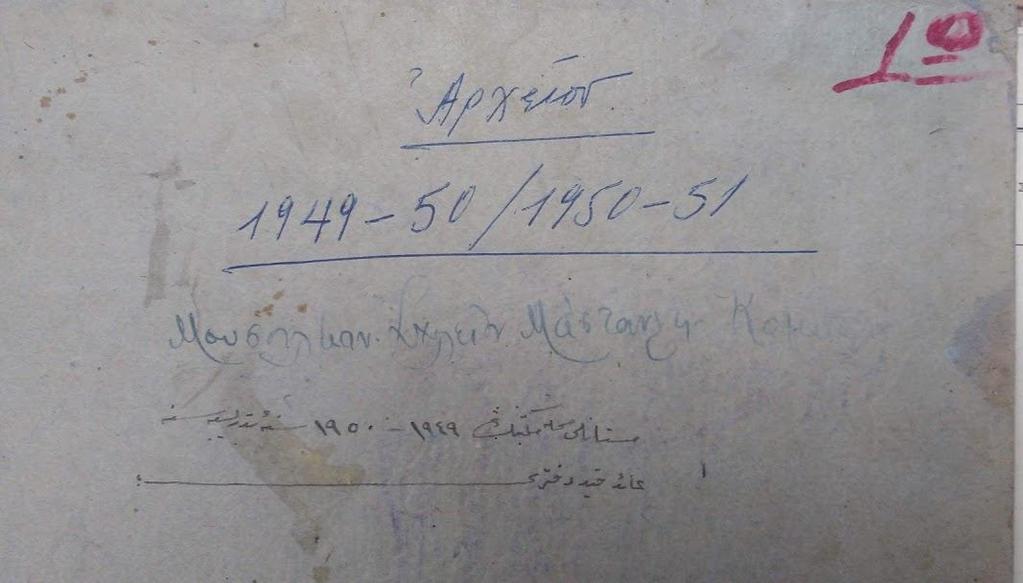 1º
Ἀρχεῖον
1949-50/1950-51
Μουσουλμαν. Σχολεῖον Μάστανλη Κομοτ
مستانلى محله مكتبنك ١٩٤٩-١٩٥٠ سنهٔ تدريسيه سنه
عائد قيد دفترى